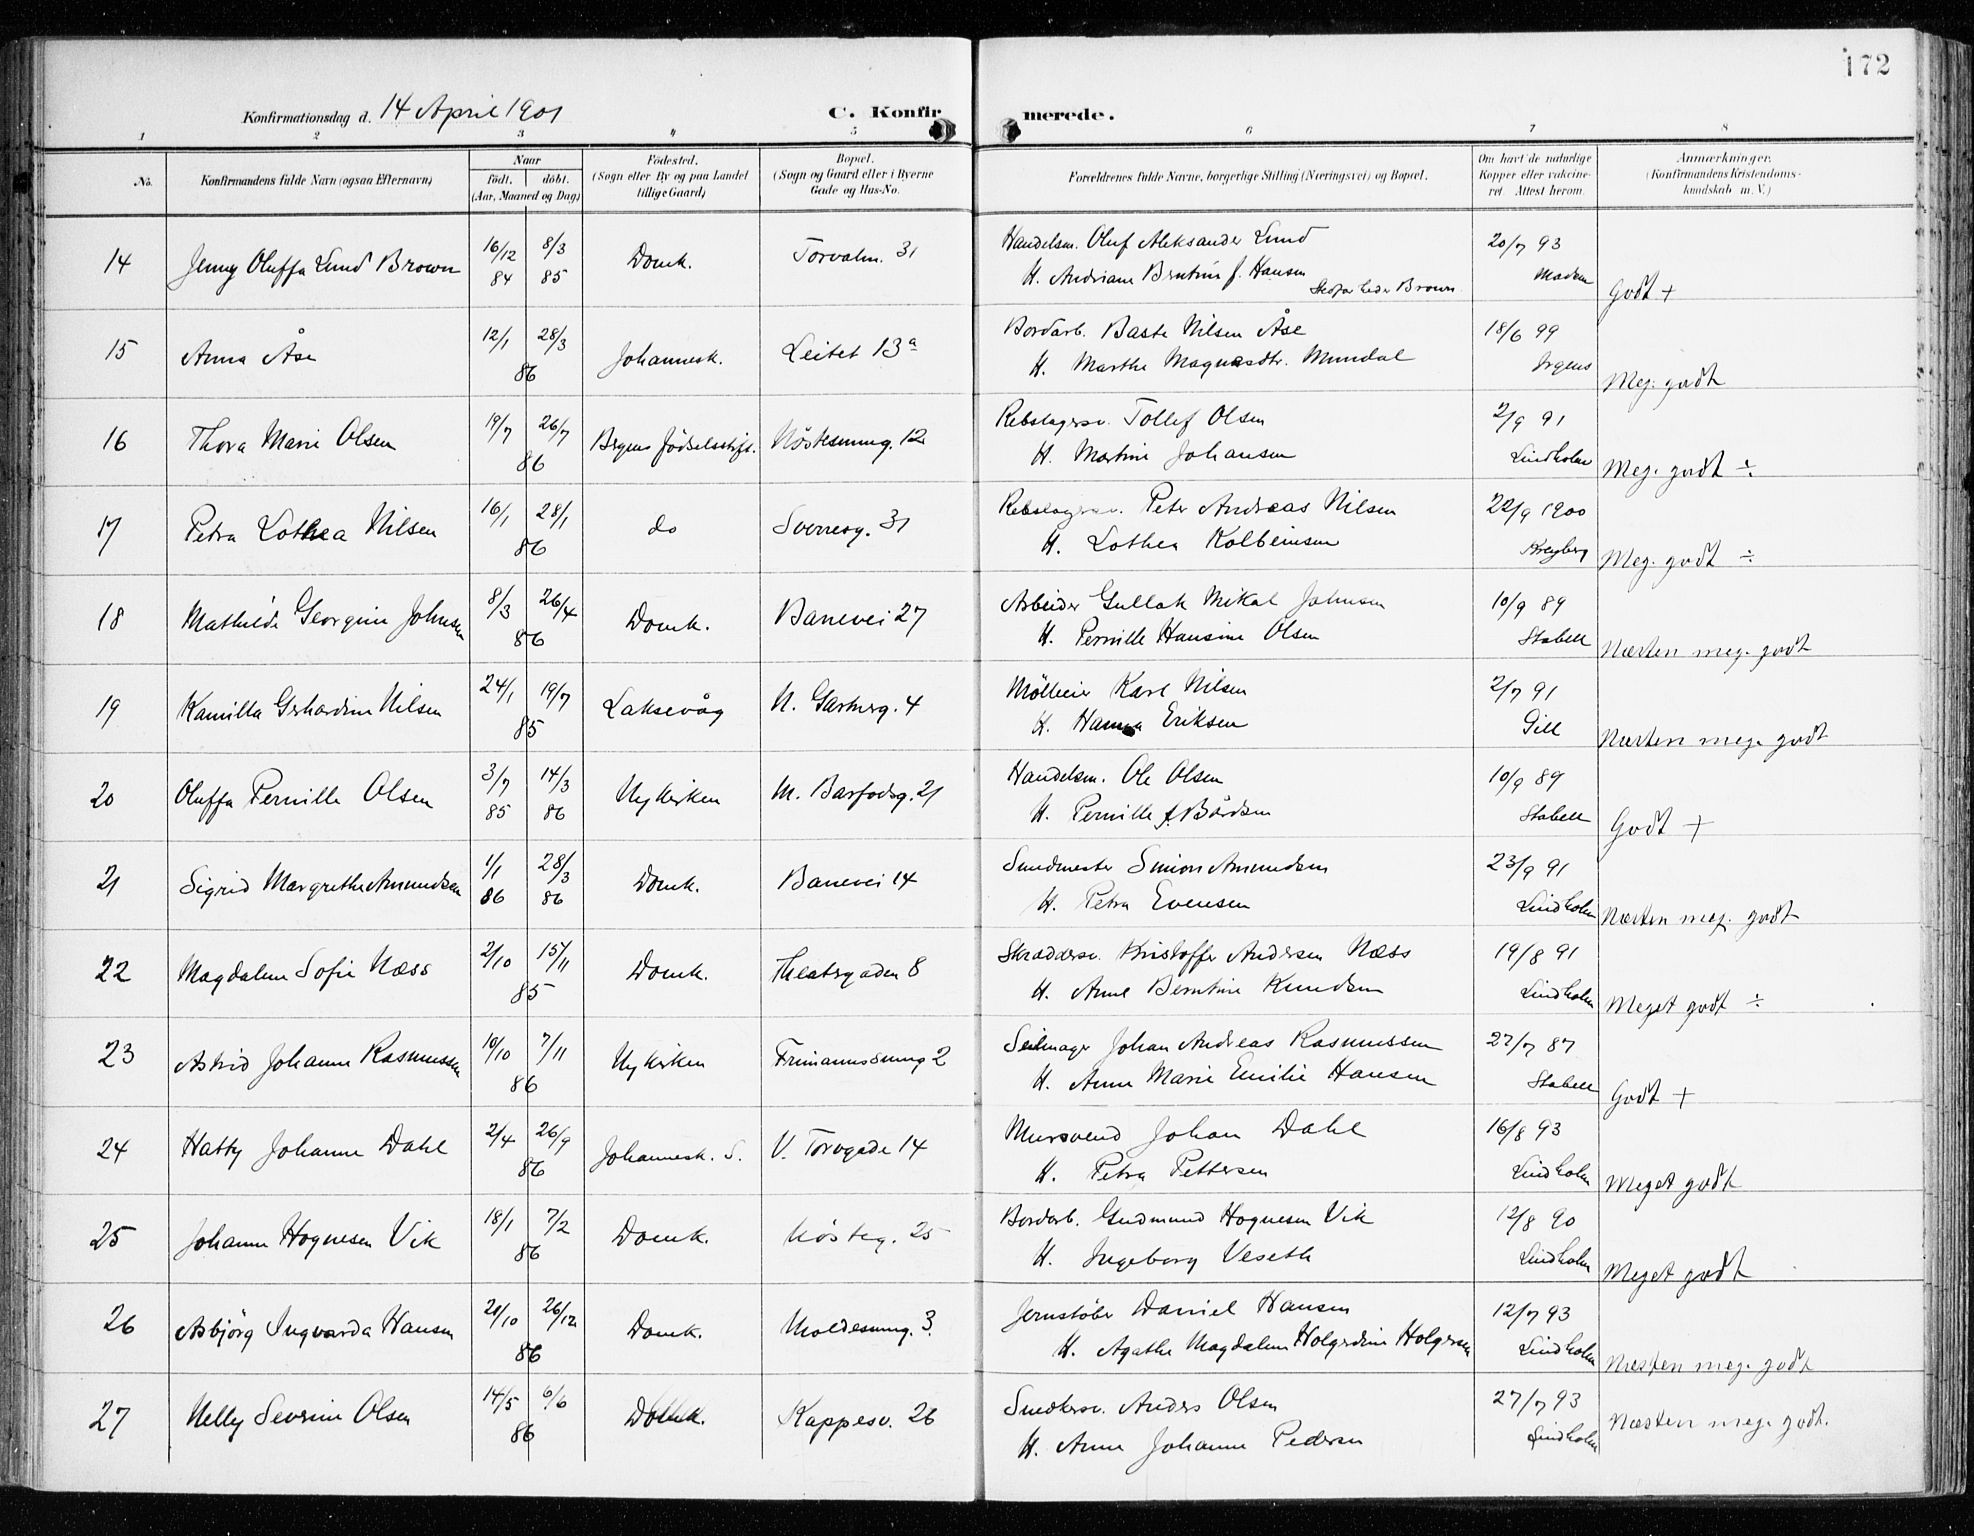 172
Konfirmationsdag d. 14 April 1901 C. Konfirmerede.
1 2 3 4 5 6 7 8
No. Konfirmandens fulde Navn (ogsaa Efternavn) Naar födt. döbt. (Aar, Maaned og Dag) Födested. (Sogn eller By og paa Landet tillige Gaard) Bopæl. (Sogn og Gaard eller i Byerne Gade og Hus-No. Forældrenes fulde Navne, borgerlige Stilling (Næringsvei) og Bopæl. Om havt de naturlige Kopper eller vakcineret. Attest herom. Anmærkninger. (Konfirmandens Kristendomskundskab m. V.)
14 Jenny Oluffa Lund Brown 16/12 84 8/3 85 Domk. Torvalm. 31 Handelsm. Oluf Aleksander Lund 20/7 93
H. Andriane Berntine f. Hansen Brown Madsen Godt +
15 Anna Åse 12/1 28/3 86 Johannesk. Leitet 13a Bordarb. Baste Nilsen Åse 18/6 99
H. Marthe Magnesdtr. Mundal Irgens Meg. godt
16 Thora Marie Olsen 19/7 26/7 86 Bergens Födselsstift. Nöstesmug. 12 Rebslagersv. Tollef Olsen 2/9 91
H. Martine Johansen Lindholm Meg. godt ÷
17 Petra Lothea Nilsen 16/1 28/1 86 do Sverresg. 31 Rebslagersv. Peter Andreas Nilsen 22/9 1900
H. Lothea Kolbeinsen Kreyberg Meg. godt ÷
18 Mathilde Georgine Johnsen 8/3 26/4 86 Domk. Banevei 27 Arbeider Gullak Mikal Johnsen 10/9 89
H. Pernille Hansine Olsen Stabell Næsten meg. godt
19 Kamilla Gerhardine Nilsen 24/1 19/7 85 Laksevåg N. Garverg. 4 Karl Nilsen 2/7 91
H. Hanna Eriksen Gill Næsten meg. godt
20 Oluffa Pernille Olsen 3/7 85 14/3 86 Nykirken M. Barfodsg. 21 Handelsm. Ole Olsen 10/9 89
H. Pernille f. Bårdsen Stabell Godt +
21 Sigrid Margrethe Amundsen 1/1 86 28/3 86 Domk. Banevei 14 Smedmester Simon Amundsen 23/9 91
H. Petra Evensen Lindholm Næsten meg. godt
22 Magdalene Sofie Næss 2/10 15/11 85 Domk. Theatergaden 8 Skraddersv. Kristoffer Andersen Næss 19/8 91
H. Anne Berntine Knudsen Lindholm Meget godt ÷
23 Astrid Johanne Rasmussen 10/10 7/11 86 Nykirken Frimannssmug 2 Seilmager Johan Andreas Rasmussen 27/7 87
H. Anne Marie Emilie Hansen Stabell Godt +
24 Hatty Johanne Dahl 2/4 26/9 86 Johannesk. S. V. Torvgade 14 Mursvend Johan Dahl 16/8 93
H. Petra Pettersen Lindholm Meget godt
25 Johanne Hognesen Vik 18/1 7/2 86 Domk. Nösteg. 25 Bordarb. Gudmund Hognesen Vik 12/8 90
H. Ingeborg Veseth Lindholm Meget godt
26 Asbjörg Ingvarda Hansen 20/10 26/12 86 Domk. Moldesmug. 3. Jernstöber Daniel Hansen 12/7 93
H. Agathe Magdalene Holgerdine Holgersen Lindholm Næsten meg. godt
27 Nelly Severine Olsen 14/5 6/6 86 Domk. Kappesv. 26 Snedkersv. Anders Olsen 27/7 93
H. Anne Johanne Pedersen Lindholm Næsten meg. godt.